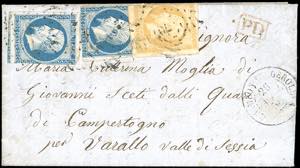 Signora
PD
Maria Caterina Moglia di
Giovanni Sceti dalli Quar
di Campertogno
per Varallo Valle di Sessia